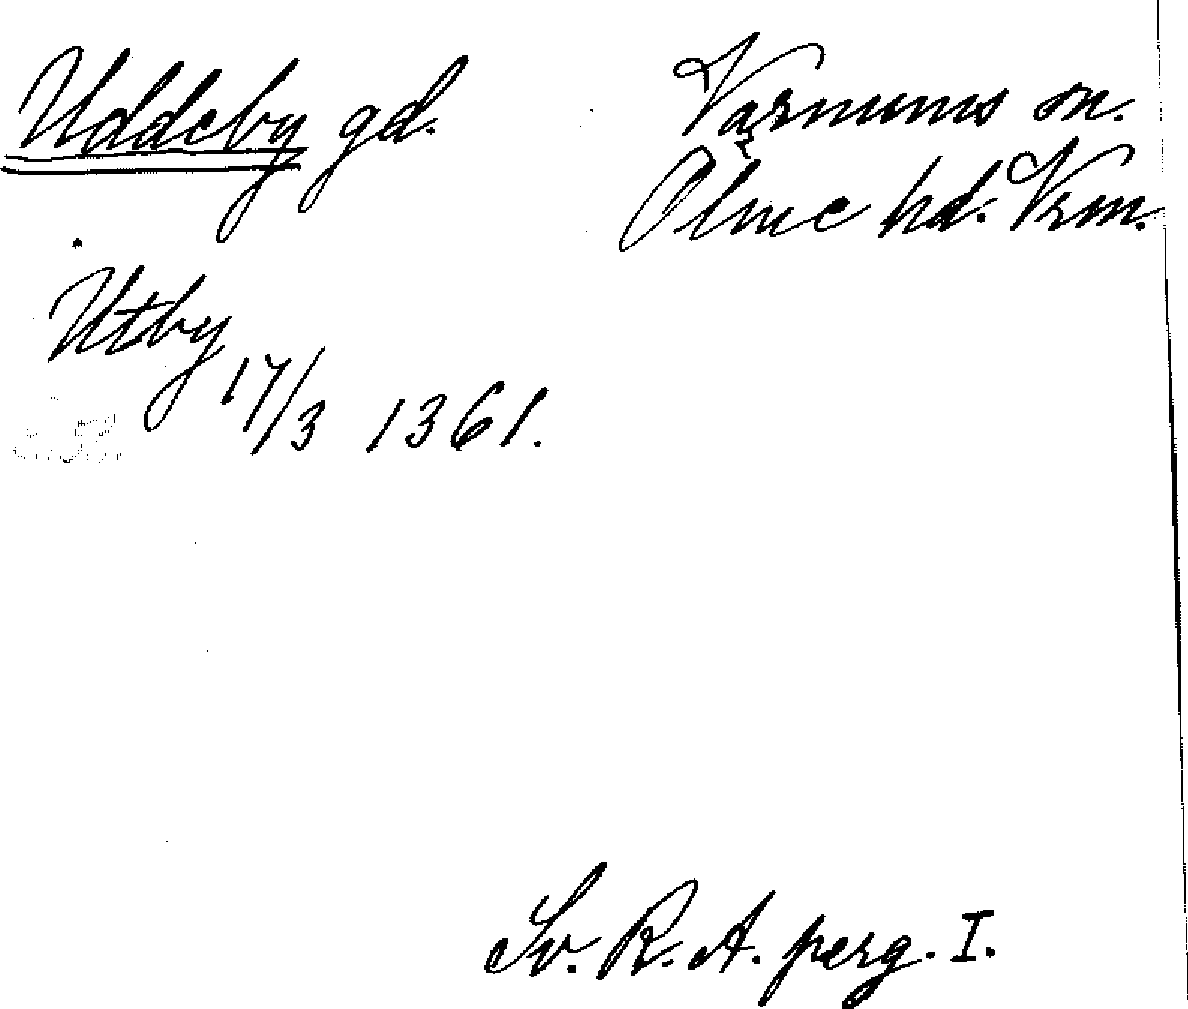 Uddeby gd.
Varnums sn.
Ölme hd. Vrm.
Utby
17/3 1361.
Sv. R. A. perg. I.